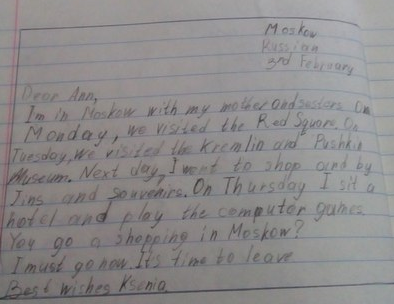 Moskow
Russian
3rd February
Dear Ann,
I'm in Moskow with my mother and sestars. On
Monday, we visited the Red Square. On
Tuesday, we visited the Kremlin and Pushkin
Museum. Next day, I went to shop and by
Jins and souvenirs. On Thursday I sit a
hotel and play the computor games.
You go a shopping in Moskow?
I must go now. It's time to leave
Best wishes Ksenia